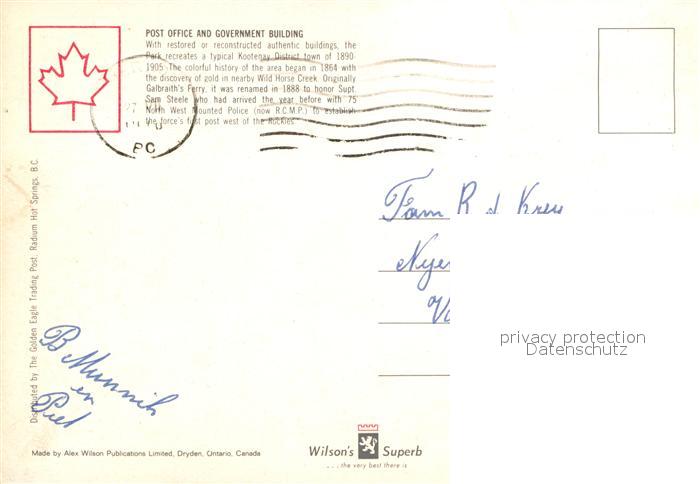 POST OFFICE AND GOVERNMENT BUILDING
With restored or reconstructed authentic buildings, the
Park recreates a typical Kootenay District town of 1890-
1905. The colorful history of the area began in 1864 with
the discovery of gold in nearby Wild Horse Creek. Originally
Galbraith's Ferry, it was renamed in 1888 to honor Supt.
Sam Steele who had arrived the year before with 75
North West Mounted Police (now R.C.M.P.) to establish
the force's first post west of the Rockies.
BC
Distributed by The Golden Eagle Trading Post, Radium Hot Springs, B.C.
Fam R
Nye
privacy protection
Datenschutz
B Munnih
en
Piet
Made by Alex Wilson Publications Limited, Dryden, Ontario, Canada
Wilson's Superb
. . . the very best there is